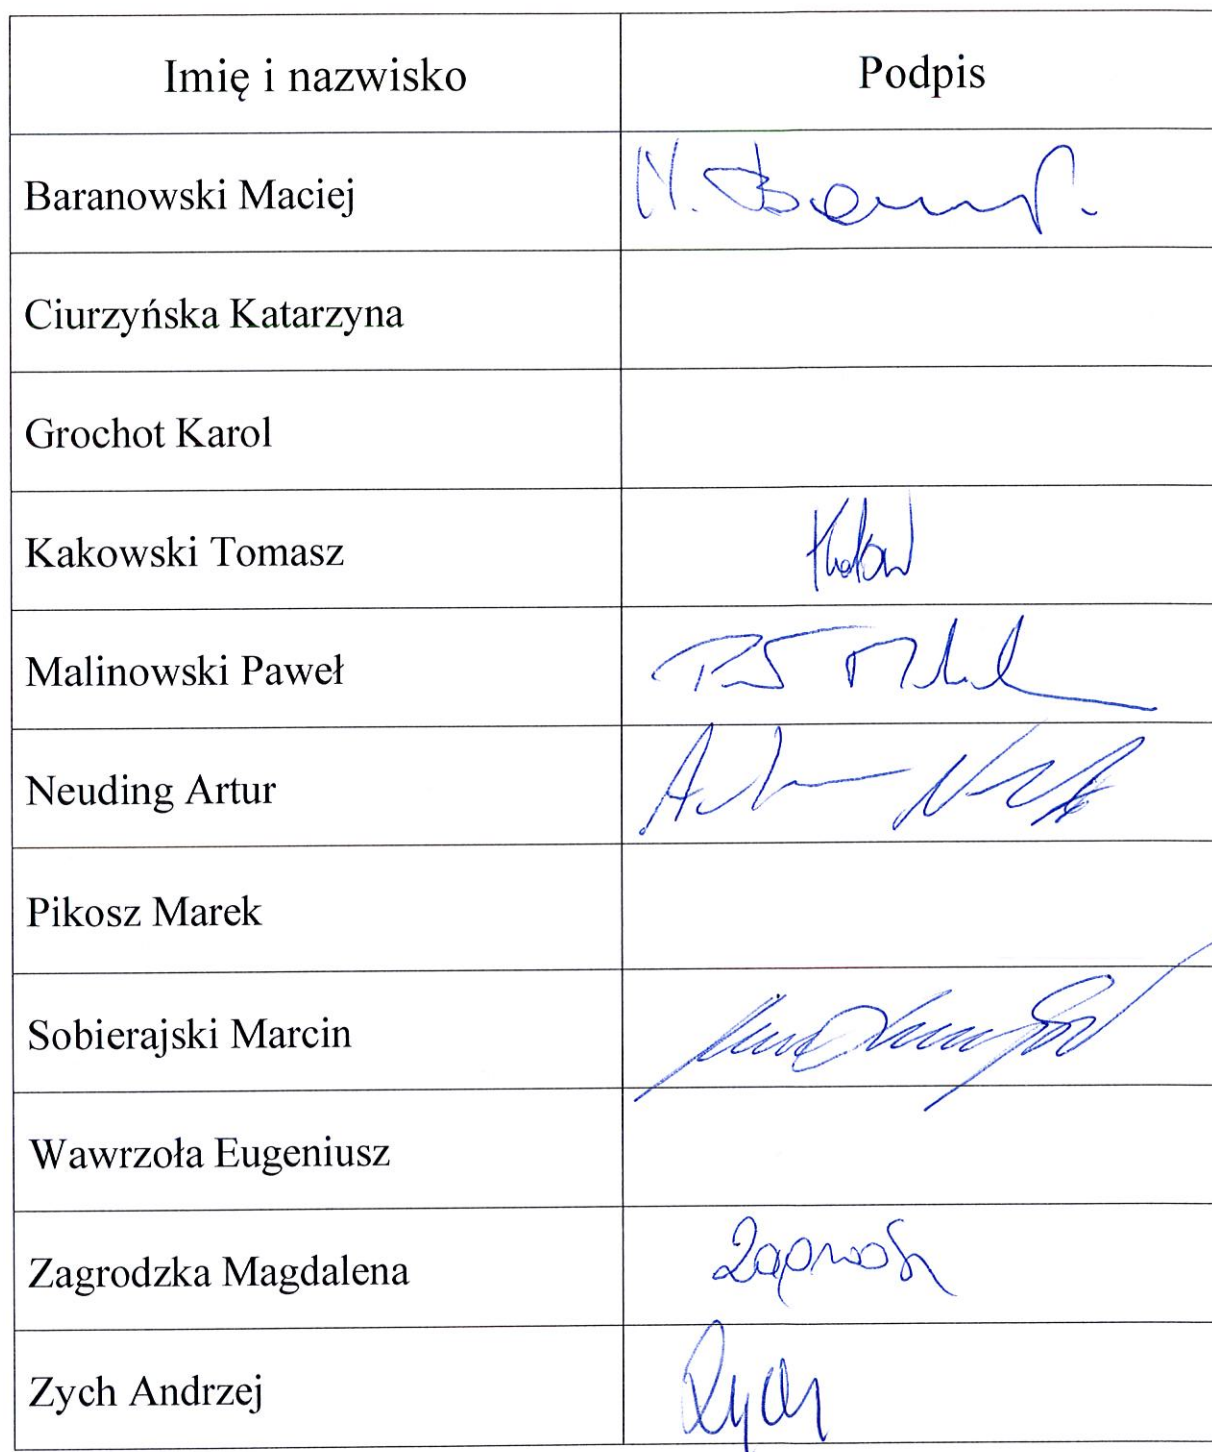 Imię i nazwisko Podpis
Baranowski Maciej
Ciurzyńska Katarzyna
Grochot Karol
Kakowski Tomasz
Malinowski Paweł
Neuding Artur
Pikosz Marek
Sobierajski Marcin
Wawrzoła Eugeniusz
Zagrodzka Magdalena
Zych Andrzej Zych